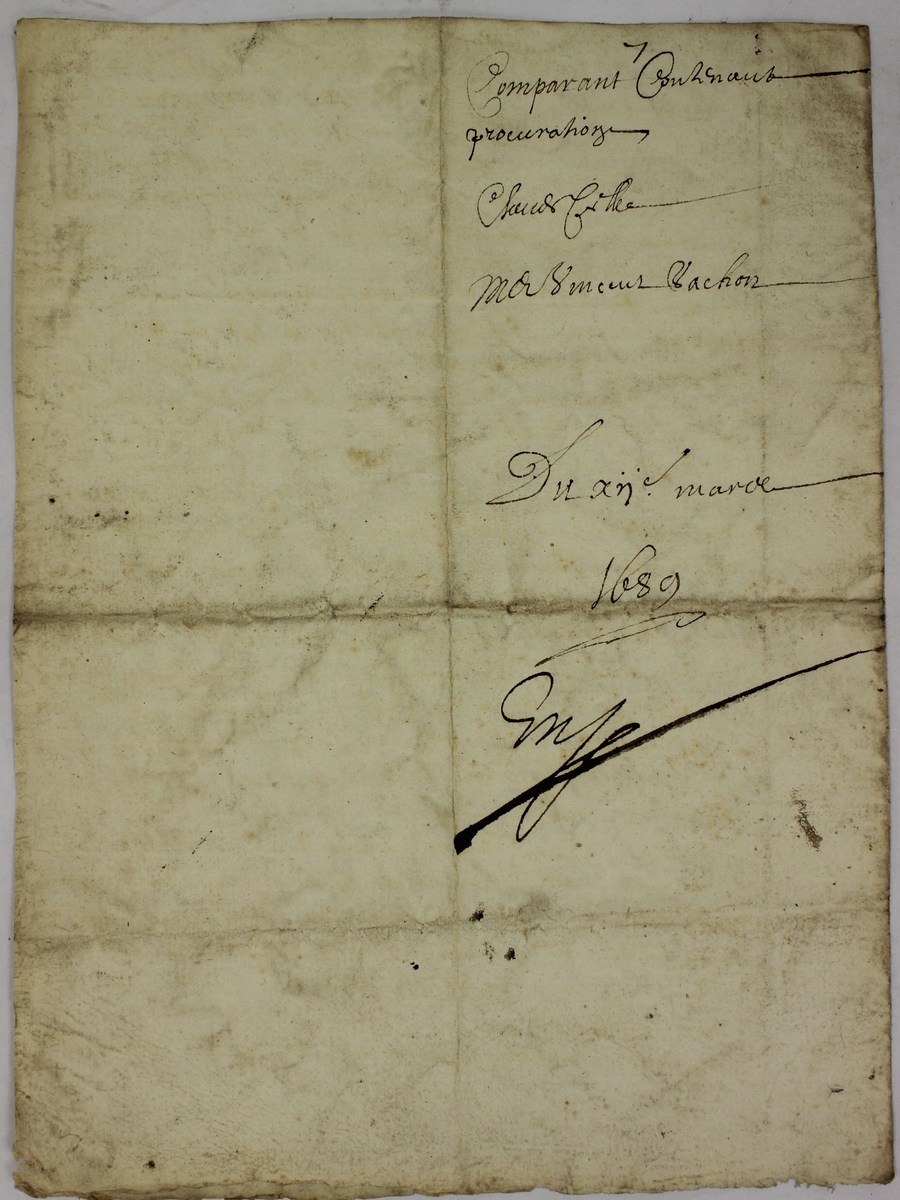 Comparant Contenant
procuration
Claude
Me Vincent Vachon
Du xije. marce
1689